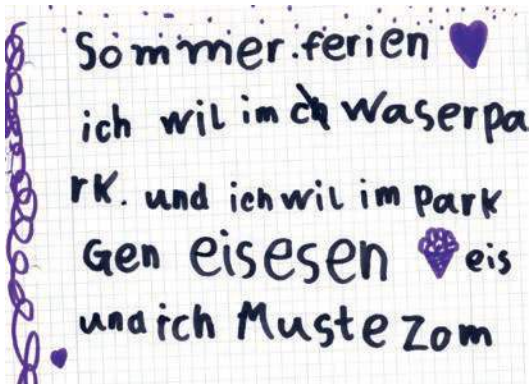 Sommer.ferien
ich wil im Waserpa
rk. und ich wil im park
Gen eisesen eis
und ich Muste zom